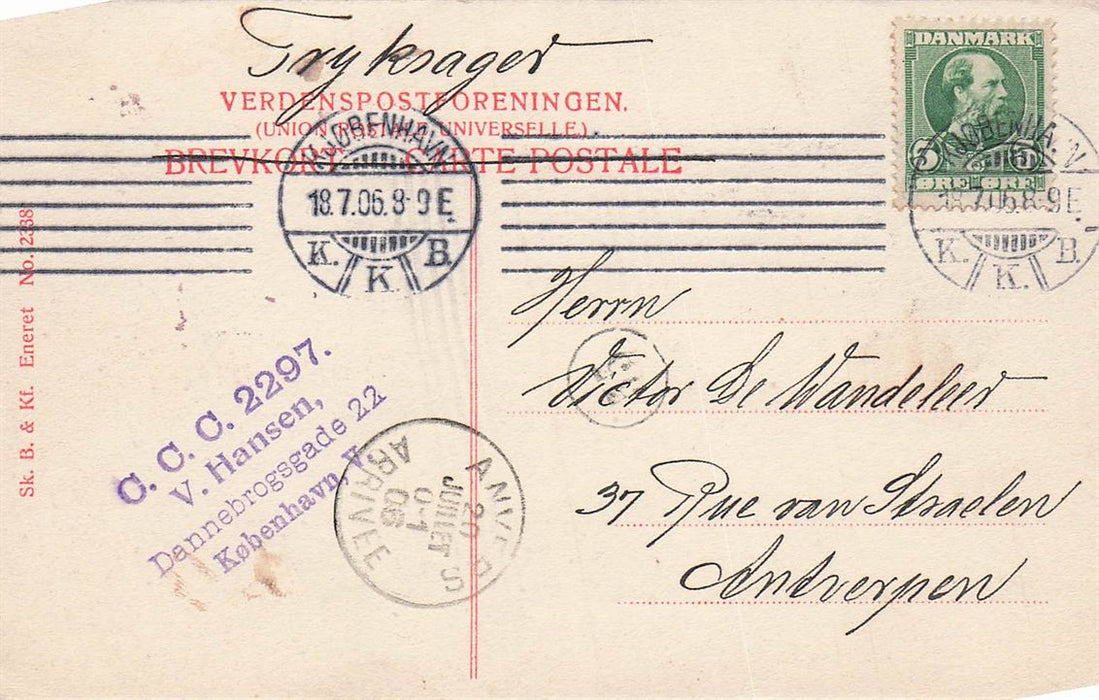 Tryksager
VERDENSPOSTFORENINGEN.
(UNION POSTALE UNIVERSELLE).
BREVKORT — CARTE POSTALE
DANMARK
5 5
ØRE ØRE
KJØBENHAVN
18.7.06.8-9E.
K. K. B.
KJØBENHAVN
18.7.06.8-9E.
K. K. B.
Sk. B. & Kf. Eneret No. 2338
C. C. C. 2297.
V. Hansen,
Dannebrogsgade 22
København, V.
ANVERS
20
JUILLET
0-1
06
ARRIVEE
Herrn
Victor De Wandeleer
37 Rue van Straelen
Antverpen